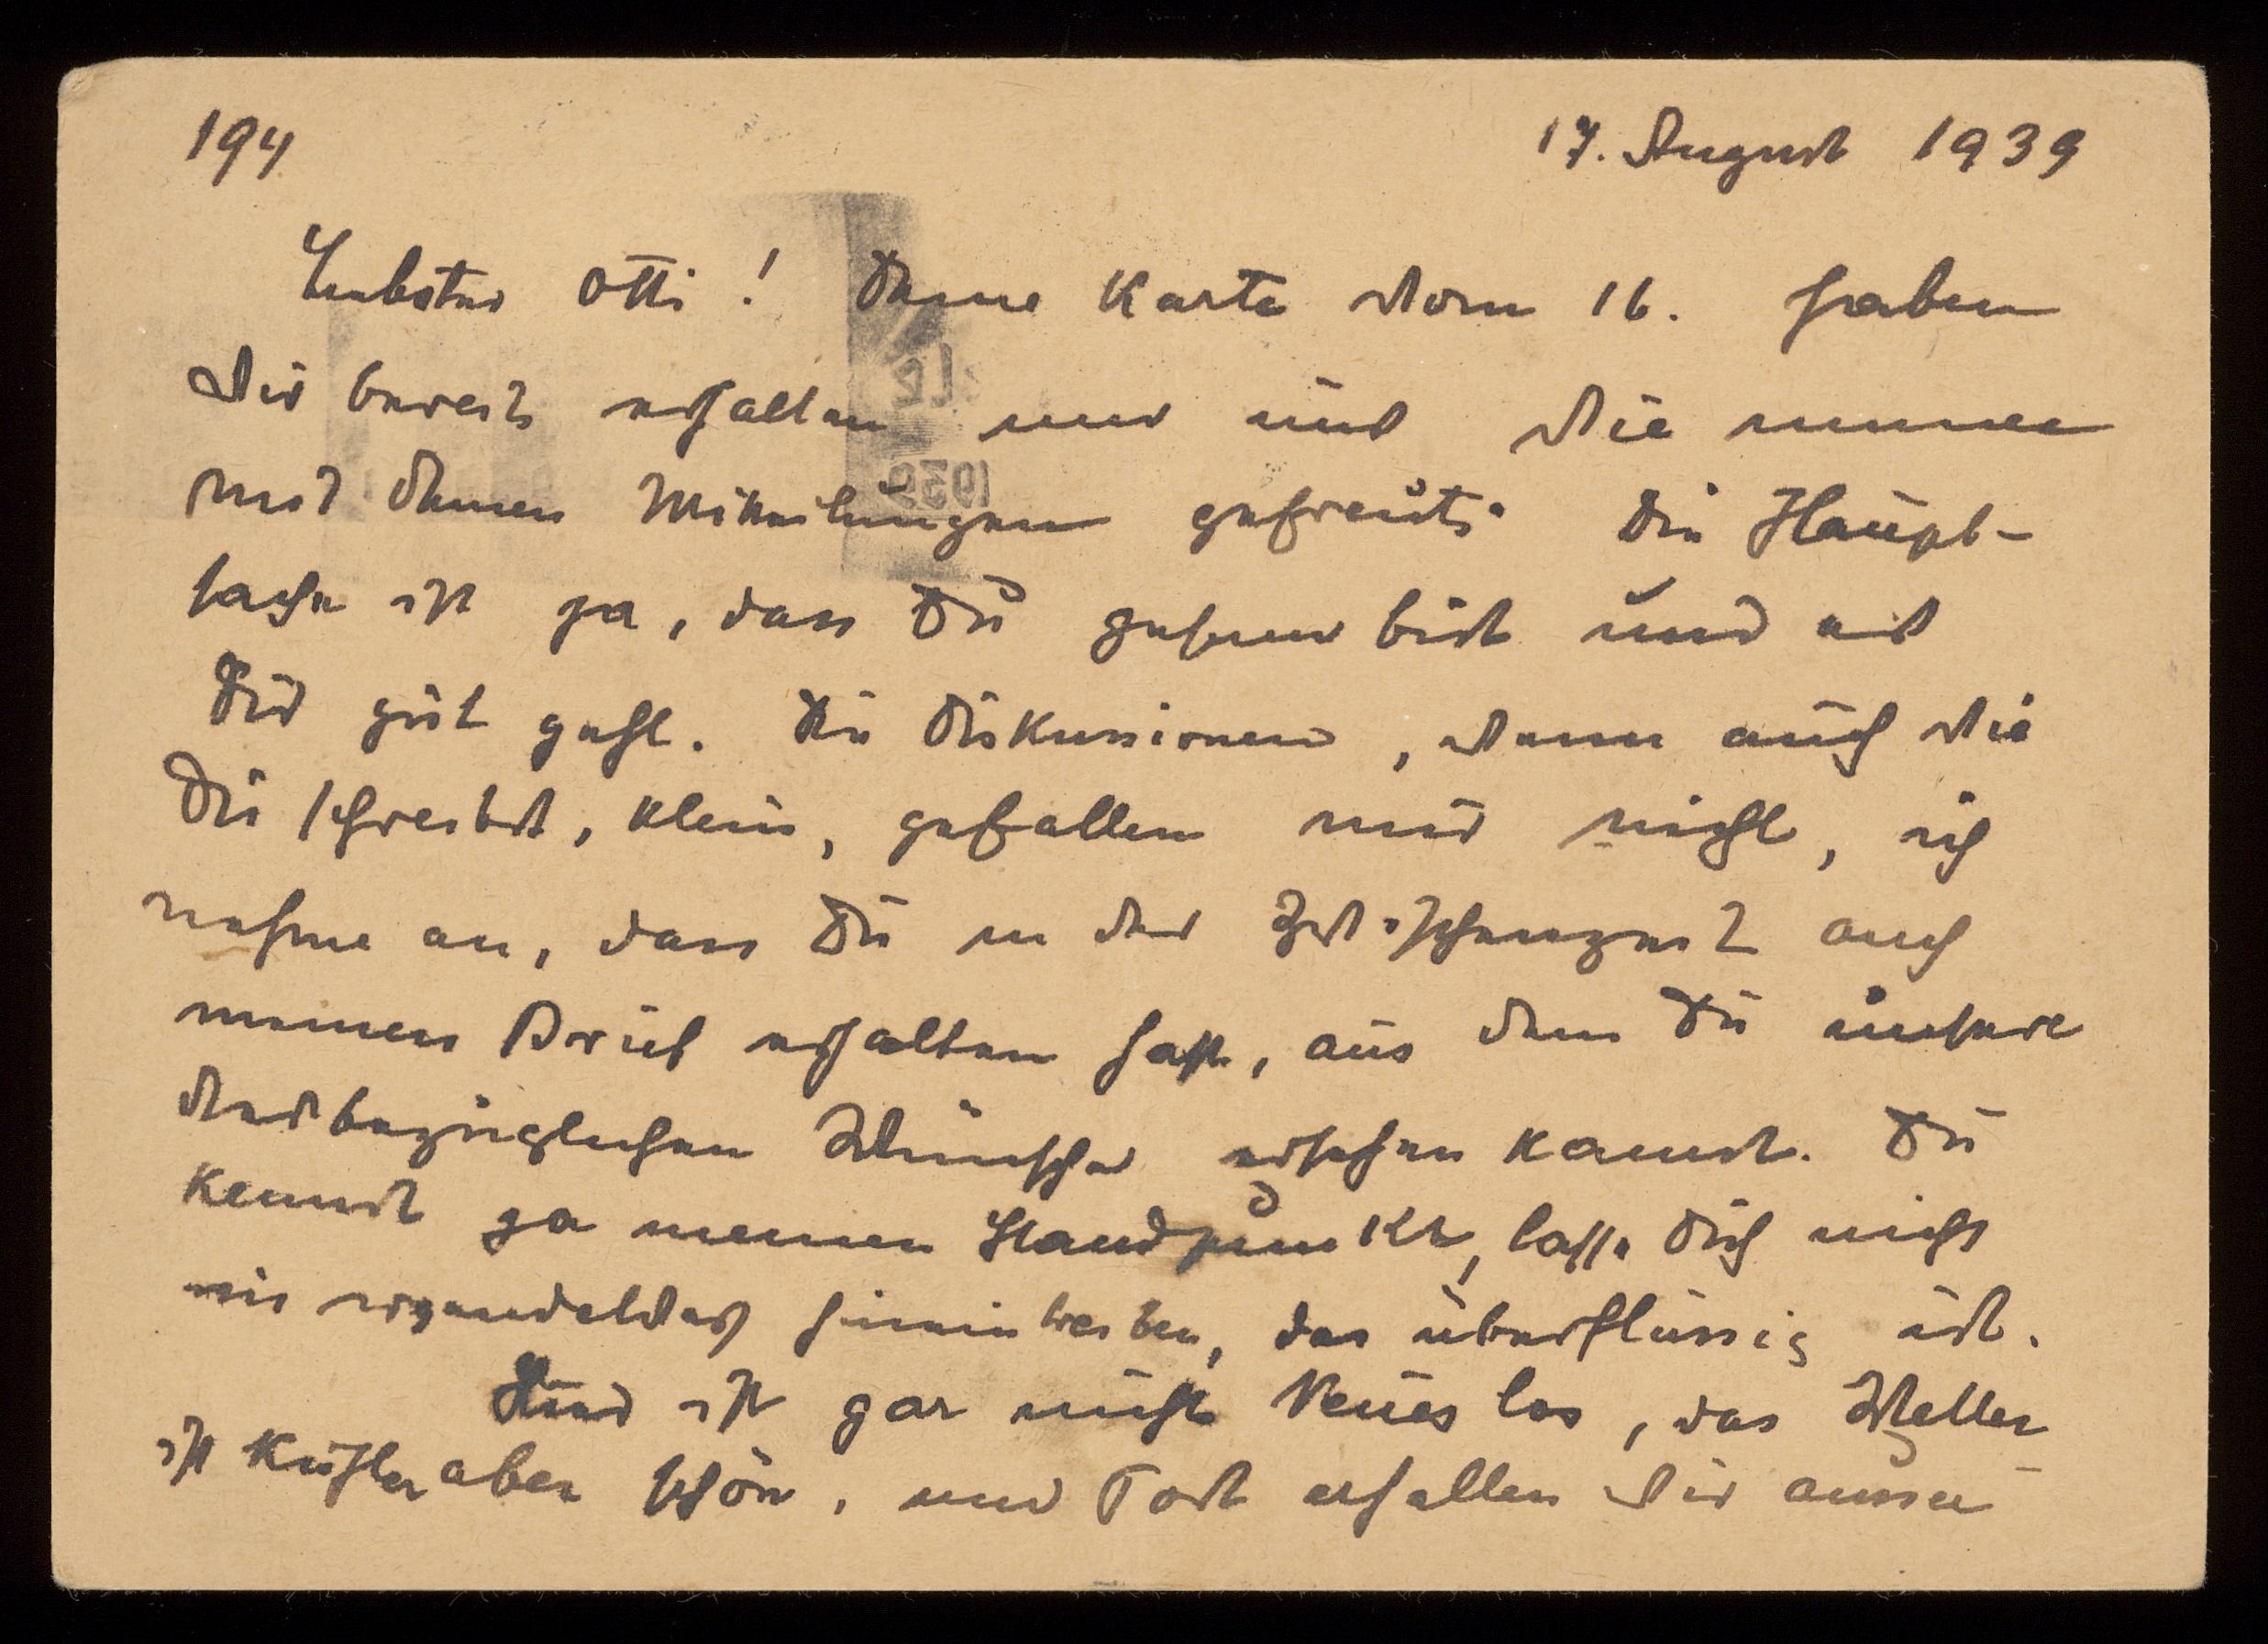 194 17. August 1939
Liebster Otti! Deine Karte vom 16. haben
wir bereits erhalten und uns wie immer
mit Deinen Mitteilungen gefreut. Die Haupt-
sache ist ja, dass Du gesund bist und es
Dir gut geht. Die Diskussionen, wenn auch wie
Du schreibst, klein, gefallen mir nicht, ich
nehme an, dass Du in der Zwischenzeit auch
meinen Brief erhalten hast, aus dem Du unsere
diesbezüglichen Wünsche ersehen kannst. Du
kennst ja meinen Standpunkt, lasse Dich nicht
in irgendetwas hineintreiben, das überflüssig ist.
Sonst ist gar nichts Neues los, das Wetter
ist kühler aber schön, und Post erhalten wir ausser
1939